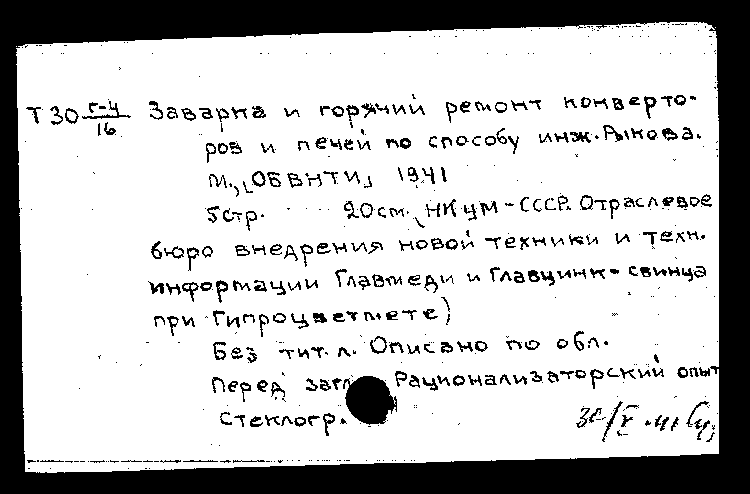 Т 30 Г-4/16 Заварка и горячий ремонт конверто-
ров и печей по способу инж. Рыкова.
М., [ОБВНТИ] 1941
5 стр. 20 см. (НКЦМ-СССР. Отраслевое
бюро внедрения новой техники и техн.
информации Главмеди и Главцинк-свинца
при Гипроцветмете)
Без тит. л. Описано по обл.
Перед загл. Рационализаторский опыт
Стеклогр.